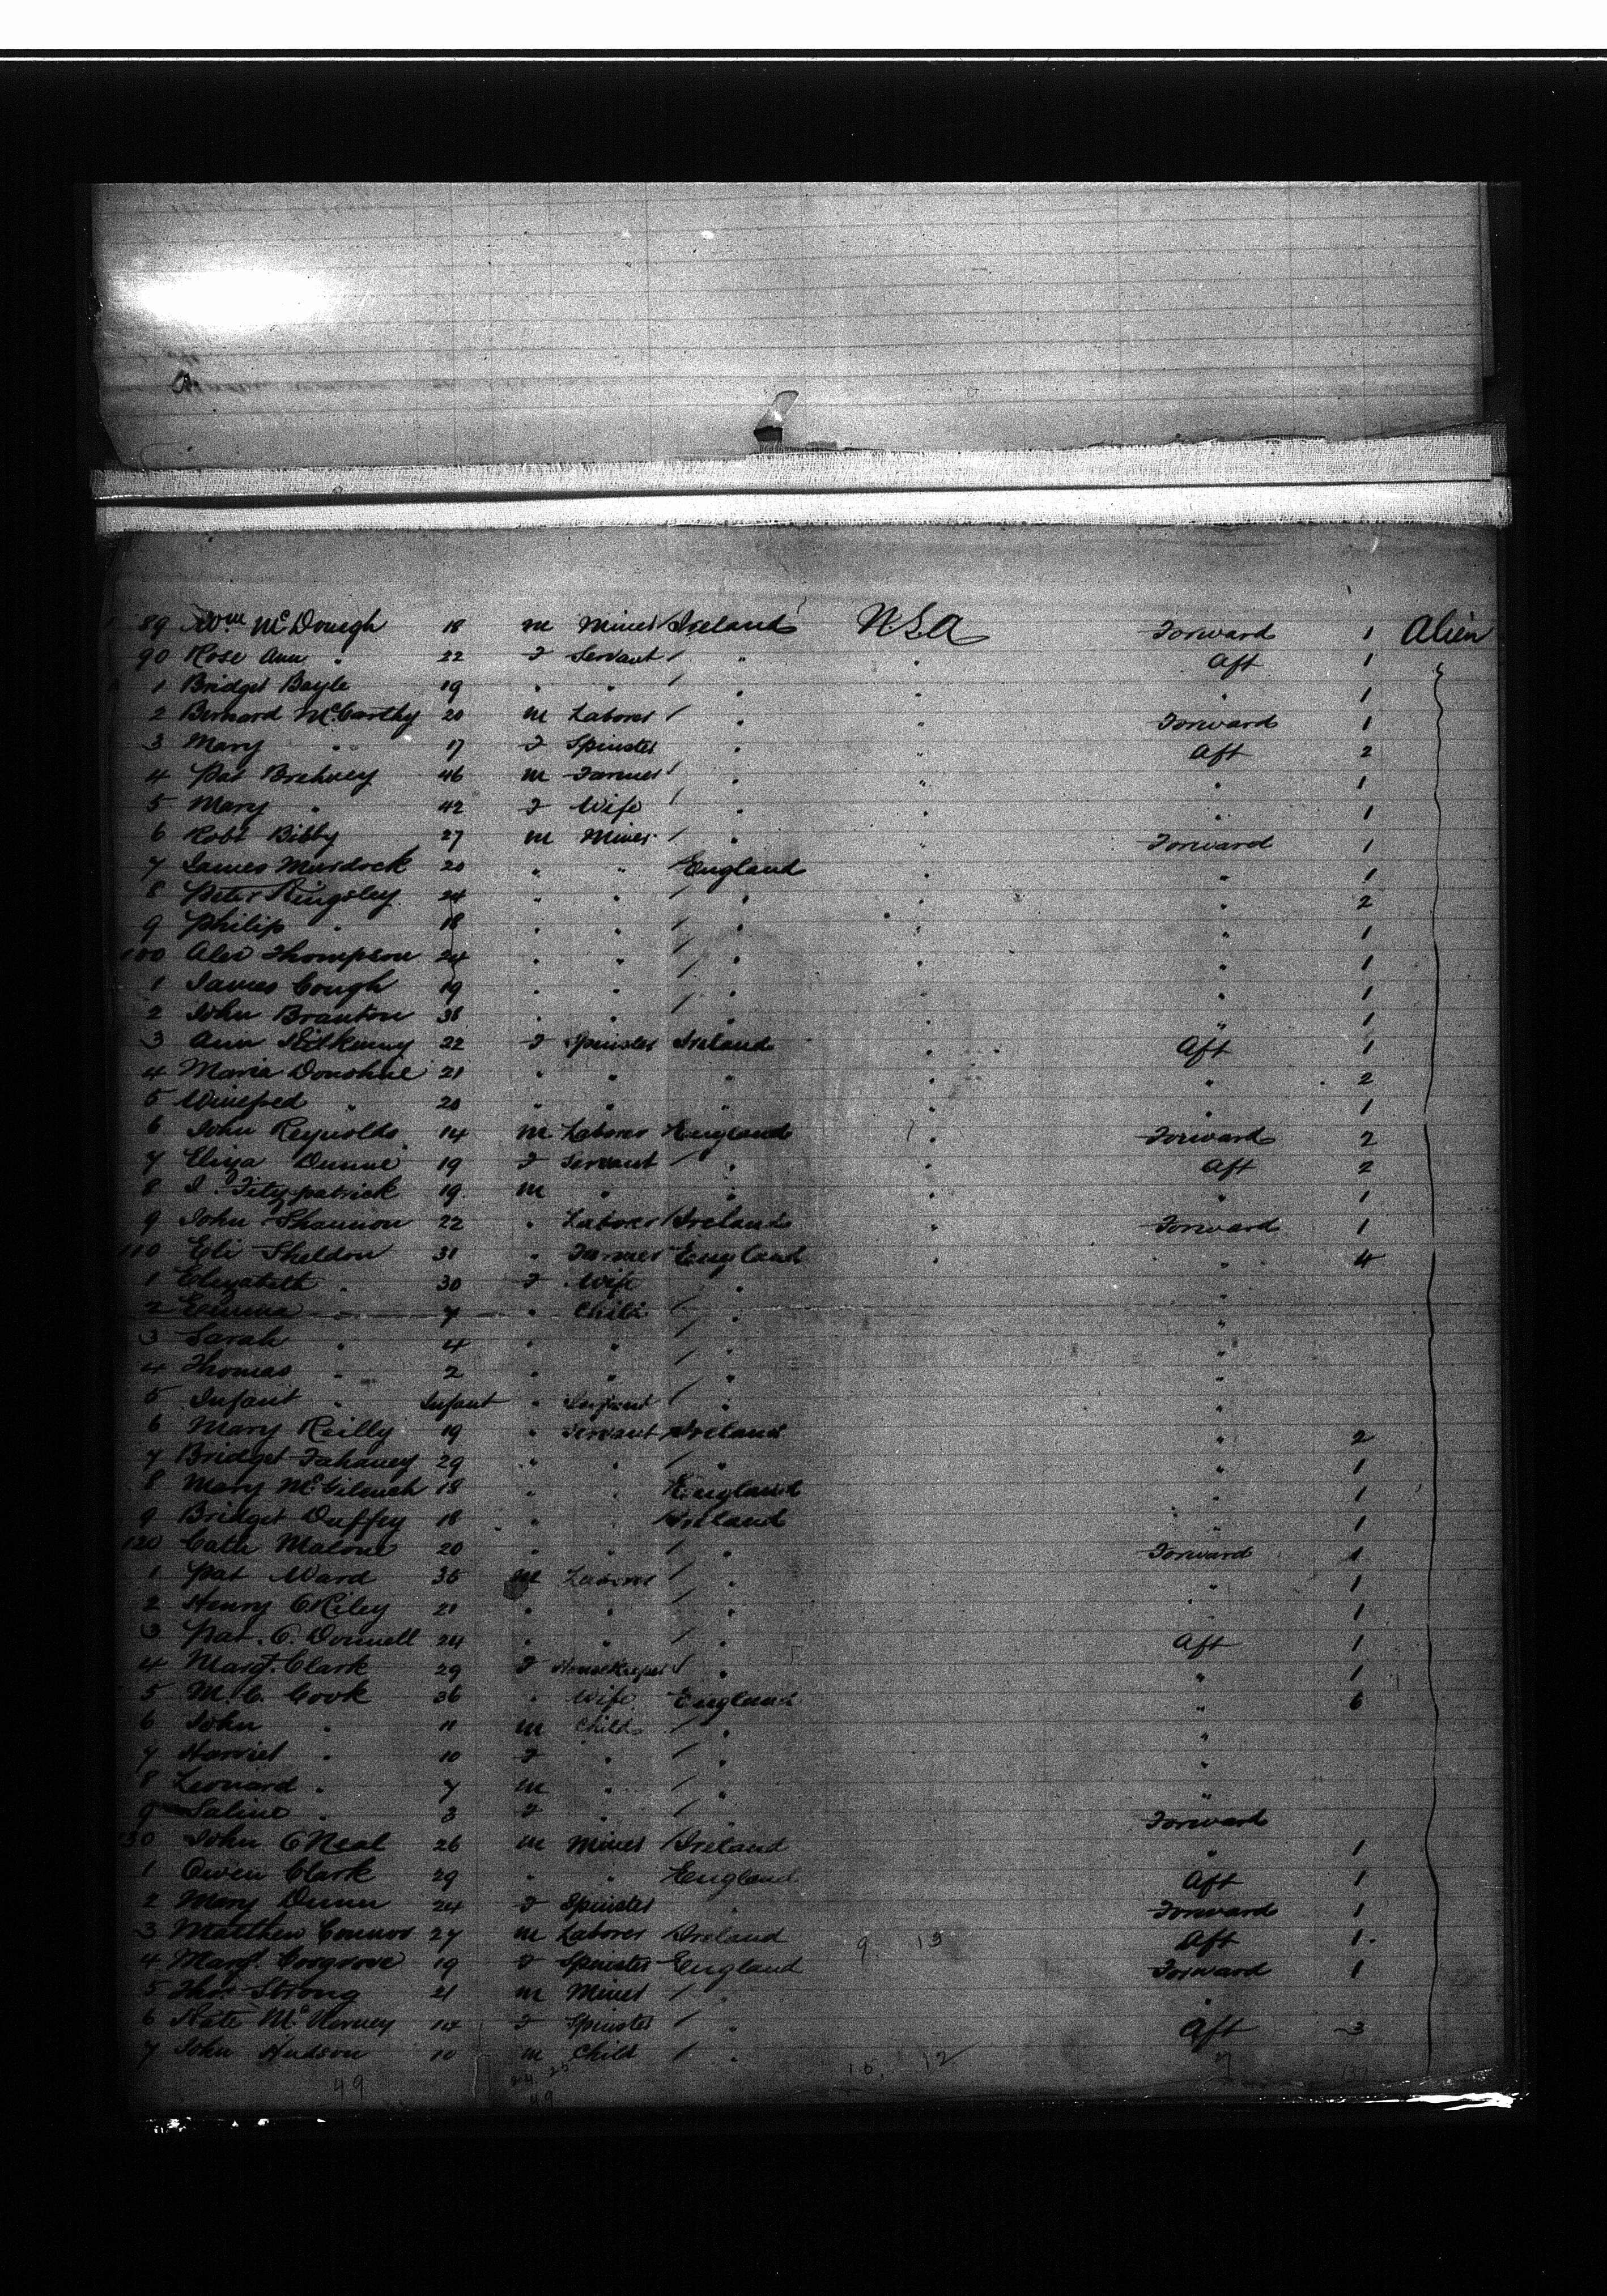 89 Wm McDonough 18 m Miner Ireland USA Forward 1 Alien
90 Rose Ann " 22 F Servant / " " Aft 1
1 Bridget Boyle 19 " " / " " 1
2 Bernard McCarthy 20 m Laborer / " " Forward 1
3 Mary " 17 F Spinster " " Aft 2
4 Pat Brehney 46 m Farmer / " " " 1
5 Mary " 42 F Wife / " " 1
6 Robt Bibby 27 m Miner / " " Forward 1
7 James Murdock 20 " " England " " 1
8 Peter Kingsley 24 " " / " " " 2
9 Philip " 18 " " / " " " 1
100 Alex Thompson 24 " " / " " " 1
1 James Cough 19 " " / " " " 1
2 John Branton 38 " " / " " " 1
3 Ann Kilkenny 22 F Spinster Ireland " Aft 1
4 Maria Donohue 21 " " " " " 2
5 Winefred " 20 " " " " " 1
6 John Reynolds 14 m Laborer England " Forward 2
7 Eliza Dunne 19 F Servant / " " Aft 2
8 J. Fitzpatrick 19 m " " " " 1
9 John Shannon 22 " Laborer Ireland " Forward 1
110 Eli Sheldon 31 " Farmer England " " 4
1 Elizabeth " 30 F Wife " "
2 Emma " 7 " Child / " "
3 Sarah " 4 " " / " "
4 Thomas " 2 " " / " "
5 Infant " Infant " Infant / " "
6 Mary Reilly 19 " Servant Ireland " 2
7 Bridget Fahaney 29 " " / " " 1
8 Mary 18 " " England " 1
9 Bridget Duffey 18 " " Ireland " 1
120 Cath Malone 20 " " / " Forward 1
1 Pat Ward 35 m Laborer / " " 1
2 Henry O'Riley 21 " " / " " 1
3 Pat. O. Donnell 24 " " / " Aft 1
4 Margt. Clark 29 F Housekeeper / " " 1
5 M. C. Cook 36 " Wife England " 6
6 John " 11 m Child / " "
7 Harriet " 10 F " / " "
8 Leonard " 7 m " / " "
9 " 3 F " / " Forward
130 John O'Neal 26 m Miner Ireland " 1
1 Owen Clark 29 " " England Aft 1
2 Mary Dunn 24 F Spinster " Forward 1
3 Matthew Connor 27 m Laborer Ireland 9. 13 Aft 1
4 Margt. Cosgrove 19 F Spinster England Forward 1
5 Thos Strong 21 m Miner / " "
6 Kate McNerney 14 F Spinster / " Aft 3
7 John Hudson 10 m Child / "
49 24 25 15. 12
49